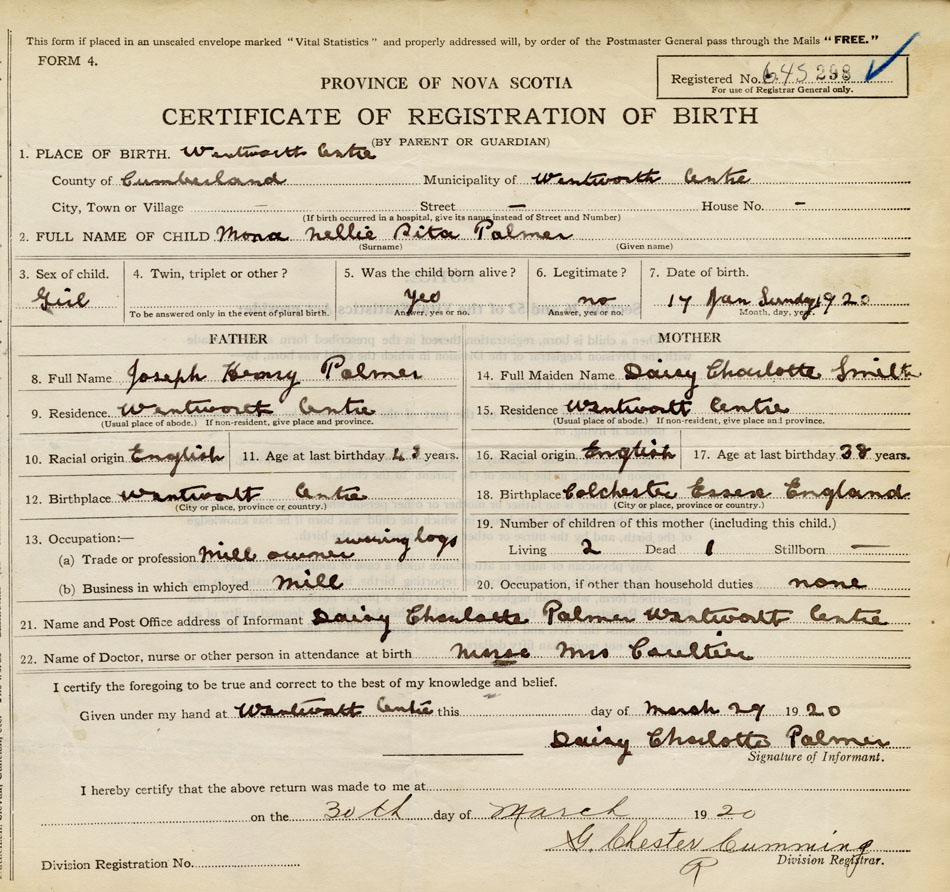 This form if placed in an unsealed envelope marked "Vital Statistics" and properly addressed will, by order of the Postmaster General pass through the Mails "FREE."
FORM 4.
Registered No. 645298
For use of Registrar General only.
PROVINCE OF NOVA SCOTIA
CERTIFICATE OF REGISTRATION OF BIRTH
(BY PARENT OR GUARDIAN)
1. PLACE OF BIRTH. Wentworth Centre
County of Cumberland Municipality of Wentworth Centre
City, Town or Village — Street — House No. -
(If birth occurred in a hospital, give its name instead of Street and Number)
2. FULL NAME OF CHILD Mona Nellie Rita Palmer
(Surname) (Given name)
3. Sex of child. 4. Twin, triplet or other? 5. Was the child born alive? 6. Legitimate? 7. Date of birth.
Girl Yes no 17 Jan Sundy 1920
To be answered only in the event of plural birth. Answer, yes or no. Answer, yes or no. Month, day, year.
FATHER MOTHER
8. Full Name Joseph Henry Palmer 14. Full Maiden Name Daisy Charlotte Smith
9. Residence. Wentworth Centre 15. Residence Wentworth Centre
(Usual place of abode.) If non-resident, give place and province. (Usual place of abode.) If non-resident, give place and province.
10. Racial origin English 11. Age at last birthday 43 years. 16. Racial origin English 17. Age at last birthday 38 years.
12. Birthplace Wentworth Centre 18. Birthplace Colchester Essex England
(City or place, province or country.) (City or place, province or country.)
13. Occupation:— 19. Number of children of this mother (including this child.)
(a) Trade or profession Mill owner logs Living 2 Dead 1 Stillborn —
(b) Business in which employed Mill 20. Occupation, if other than household duties none
21. Name and Post Office address of Informant Daisy Charlotte Palmer Wentworth Centre
22. Name of Doctor, nurse or other person in attendance at birth Nurse Mrs
I certify the foregoing to be true and correct to the best of my knowledge and belief.
Given under my hand at Wentworth Centre this day of March 29 1920
Daisy Charlotte Palmer
Signature of Informant.
I hereby certify that the above return was made to me at
on the 30th day of March 1920
G. Chester Cumming
Division Registration No. Division Registrar.